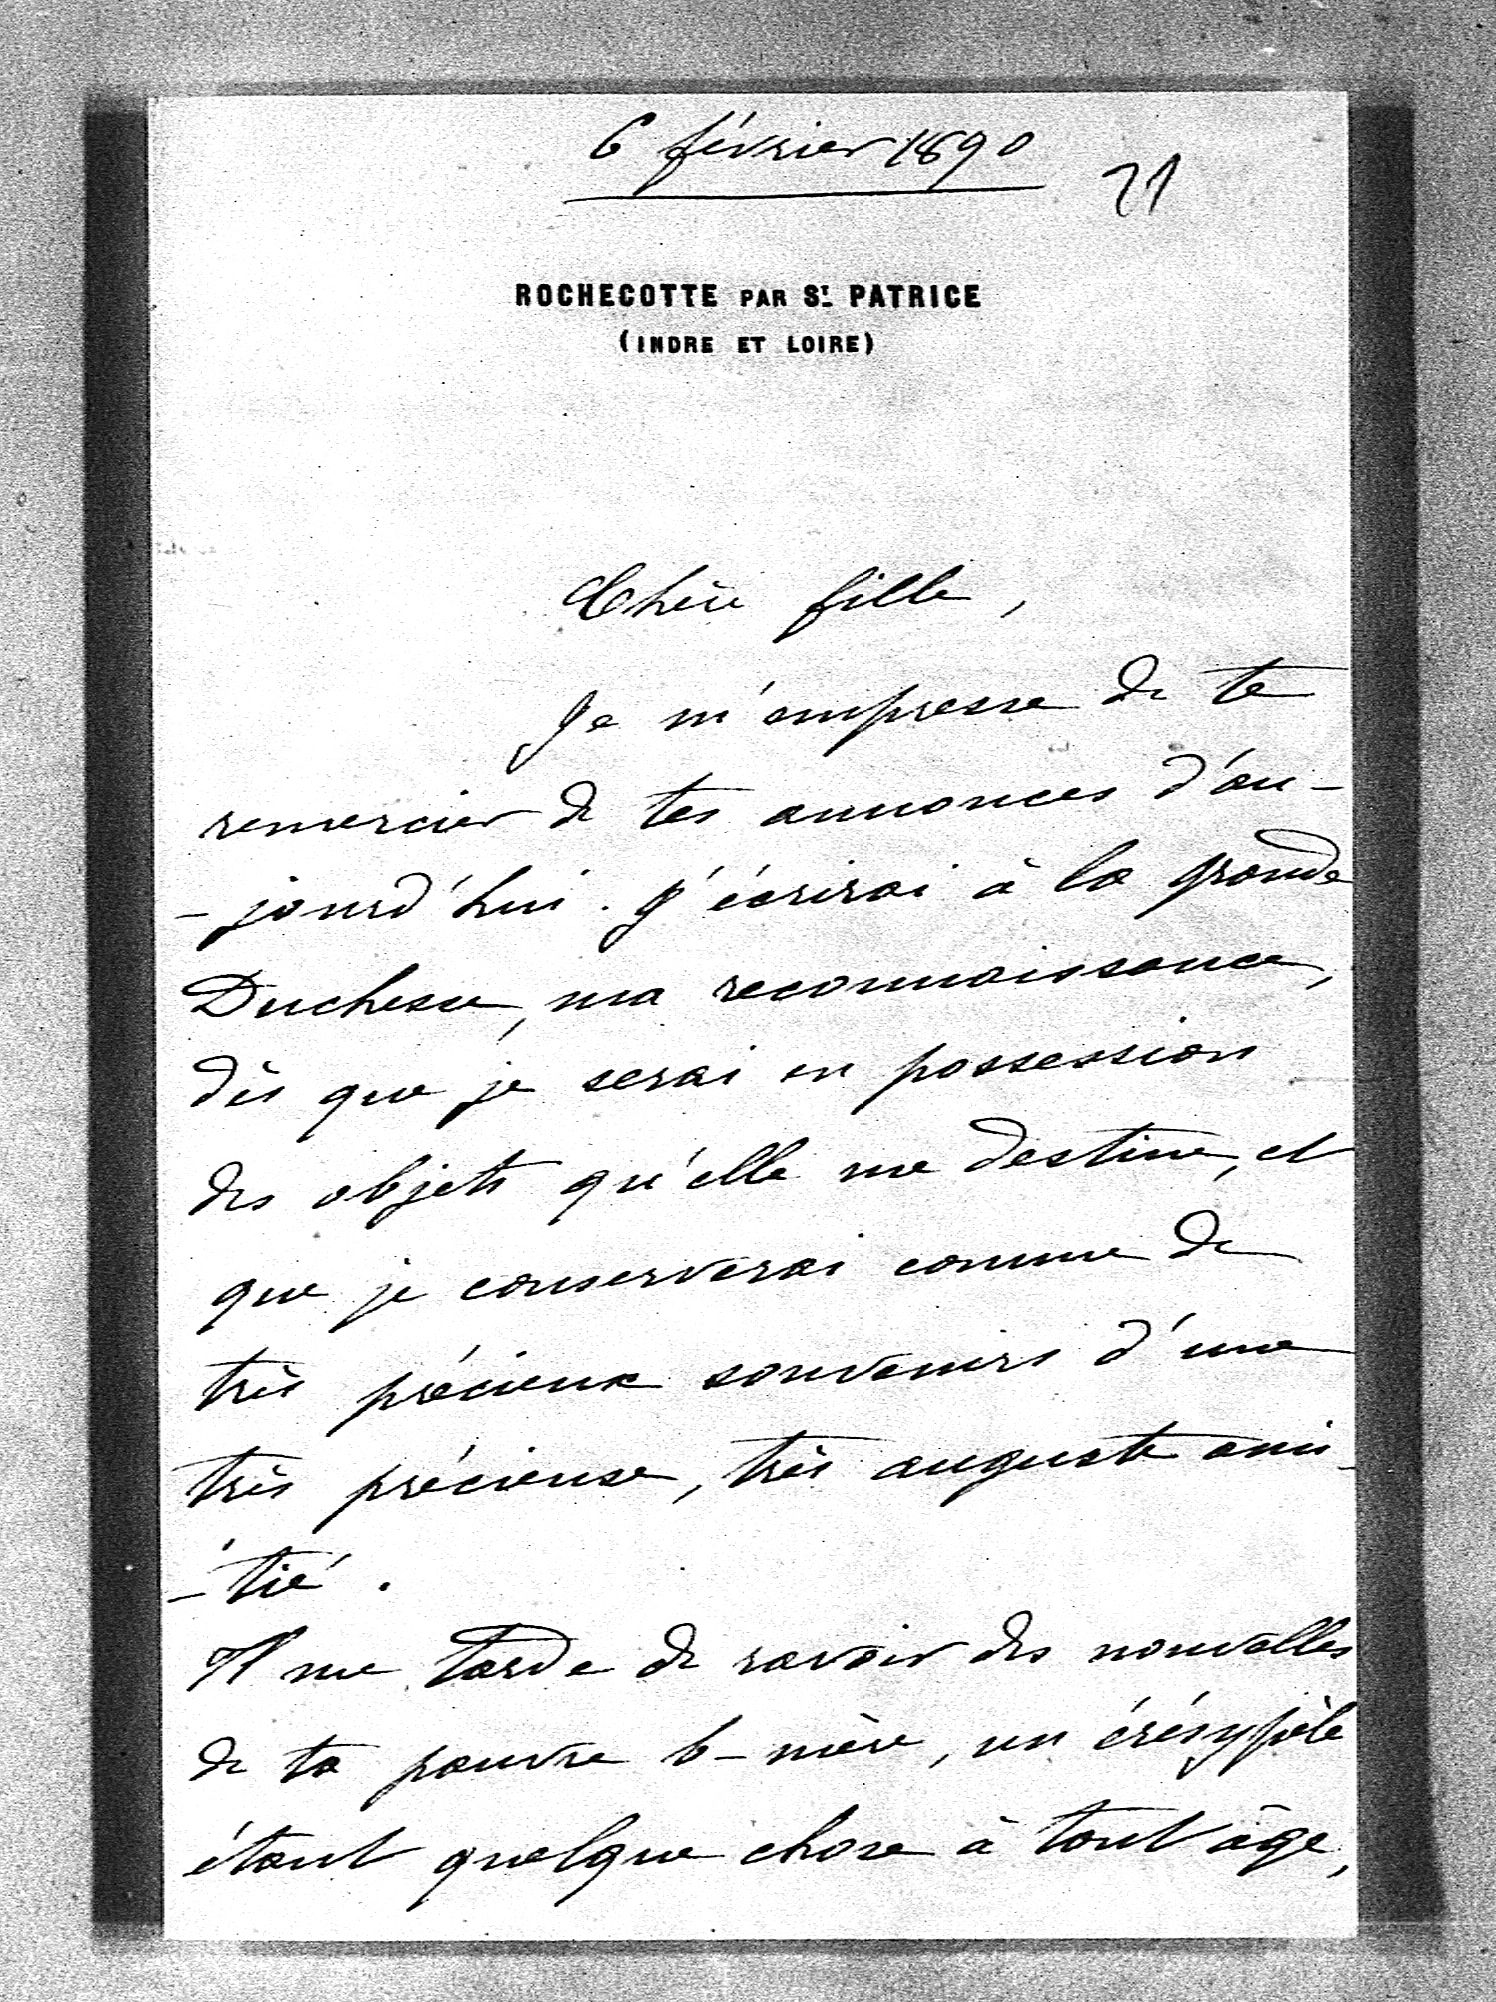 6 février 1890
21
ROCHECOTTE PAR ST. PATRICE
(INDRE ET LOIRE)
Chère fille,
Je m'empresse de te
remercier de tes annonces d'au-
-jourd'hui. J'écrirai à la grande
Duchesse, ma reconnaissance,
dès que je serai en possession
des objets qu'elle me destine, et
que je conserverai comme de
très précieux souvenirs d'une
très précieuse, très auguste ami-
-tié.
Il me tarde de savoir des nouvelles
de ta pauvre b-mère, un érésypèle
étant quelque chose à tout âge,